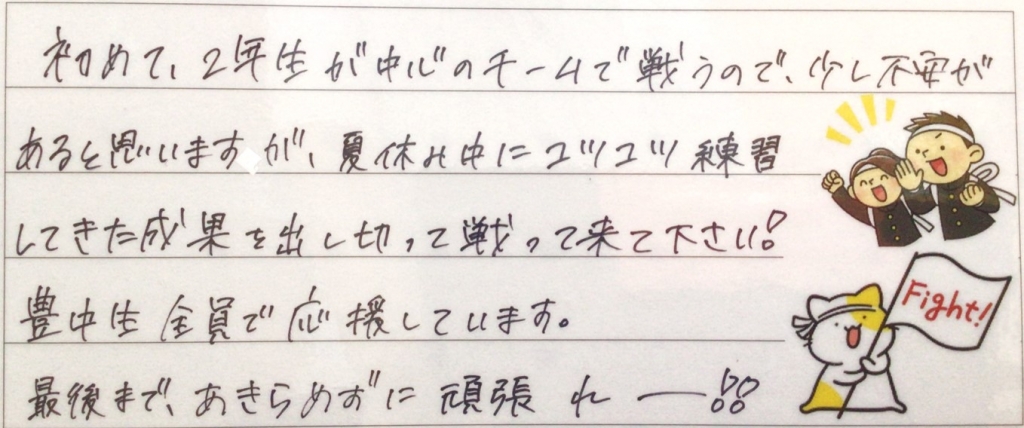 初めて、2年生が中心のチームで戦うので、少し不安が
あると思いますが、夏休み中にコツコツ練習
してきた成果を出し切って戦って来て下さい!
豊中生全員で応援しています。
最後まで、あきらめずに頑張れー!!
Fight!